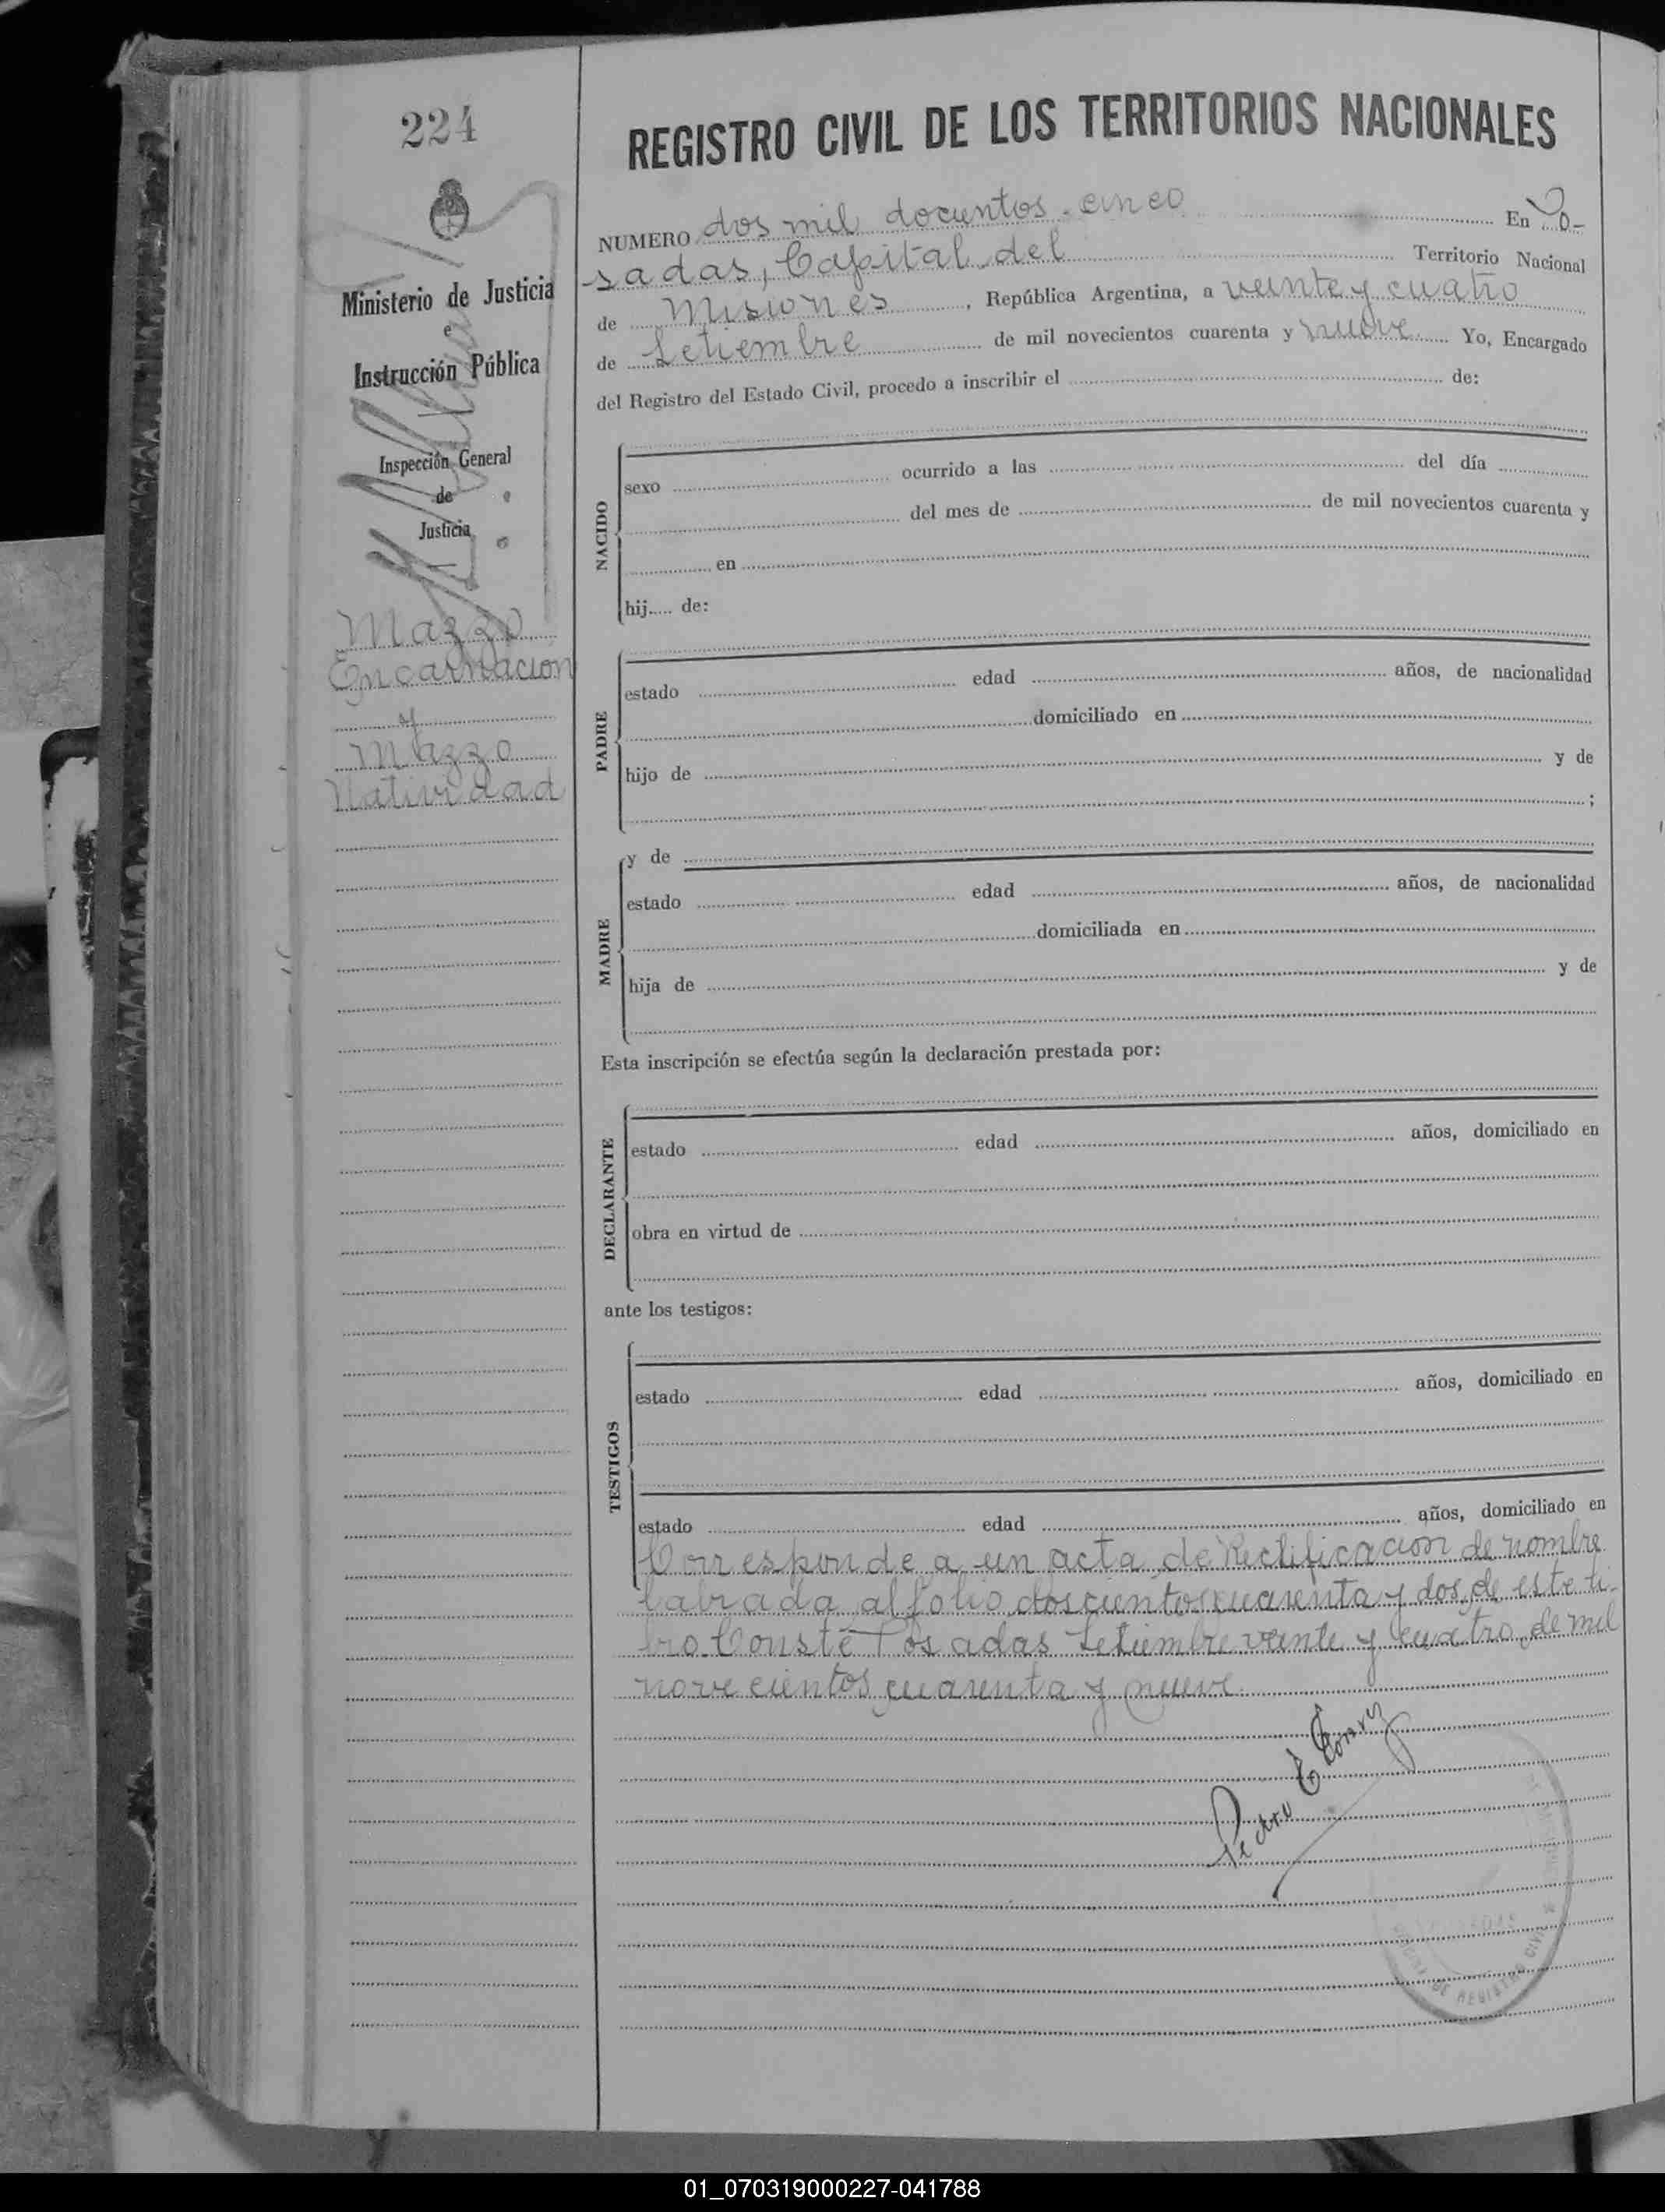 224
Ministerio de Justicia
e
Instrucción Pública
Inspección General
de
Justicia
Mazzo
Encarnación
y
Mazzo
Natividad
REGISTRO CIVIL DE LOS TERRITORIOS NACIONALES
NUMERO dos mil docientos cinco En Po-
sadas, Capital del Territorio Nacional
de Misiones, República Argentina, a veinte y cuatro
de Setiembre de mil novecientos cuarenta y nueve Yo, Encargado
del Registro del Estado Civil, procedo a inscribir el de:
NACIDO
sexo ocurrido a las del día
del mes de de mil novecientos cuarenta y
en
hij..... de:
PADRE
estado edad años, de nacionalidad
domiciliado en
hijo de y de
;
MADRE
y de
estado edad años, de nacionalidad
domiciliada en
hija de y de
Esta inscripción se efectúa según la declaración prestada por:
DECLARANTE
estado edad años, domiciliado en
obra en virtud de
ante los testigos:
TESTIGOS
estado edad años, domiciliado en
estado edad años, domiciliado en
Corresponde a un acta de Rectificación de nombre
labrada al folio doscientos cuarenta y dos de este li-
bro. Conste Posadas Setiembre veinte y cuatro de mil
novecientos cuarenta y nueve
Pedro E
DE REGISTRO CIVIL
01_070319000227-041788